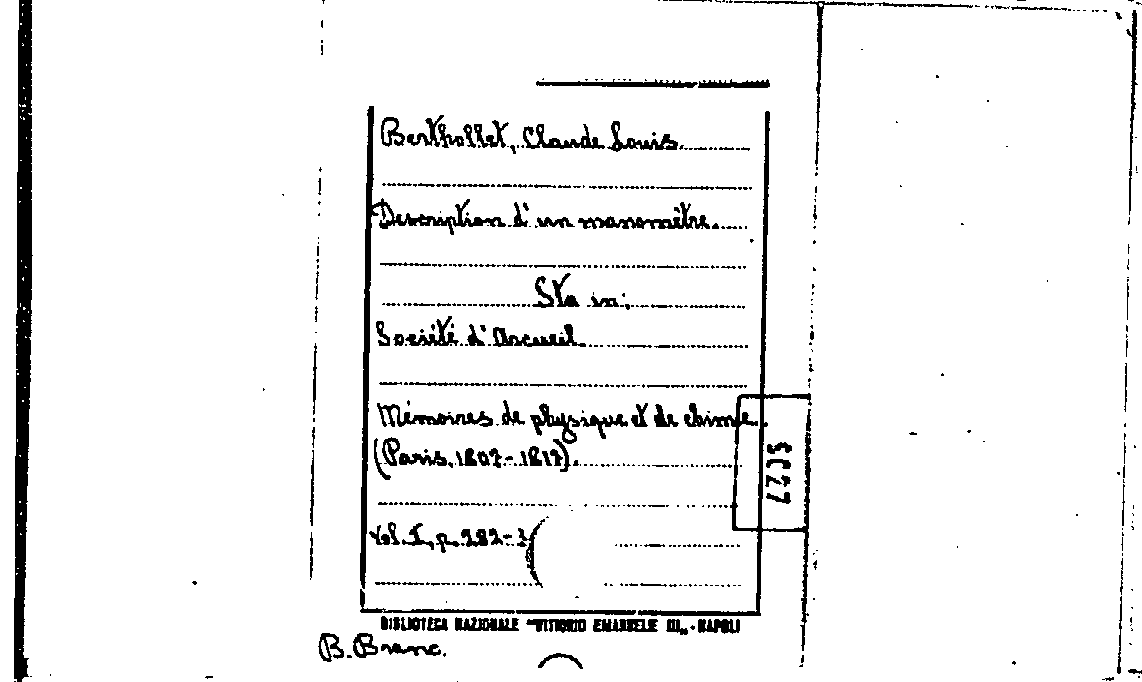 Berthollet, Claude Louis.
Description d'un manomètre.
Sta in:
Société d'Arcueil.
Mémoires de physique et de chimie.
(Paris, 1807-1817).
vol. I, p. 282-
SC27
BIBLIOTECA NAZIONALE "VITTORIO EMANUELE III„ - NAPOLI
B. Branc.